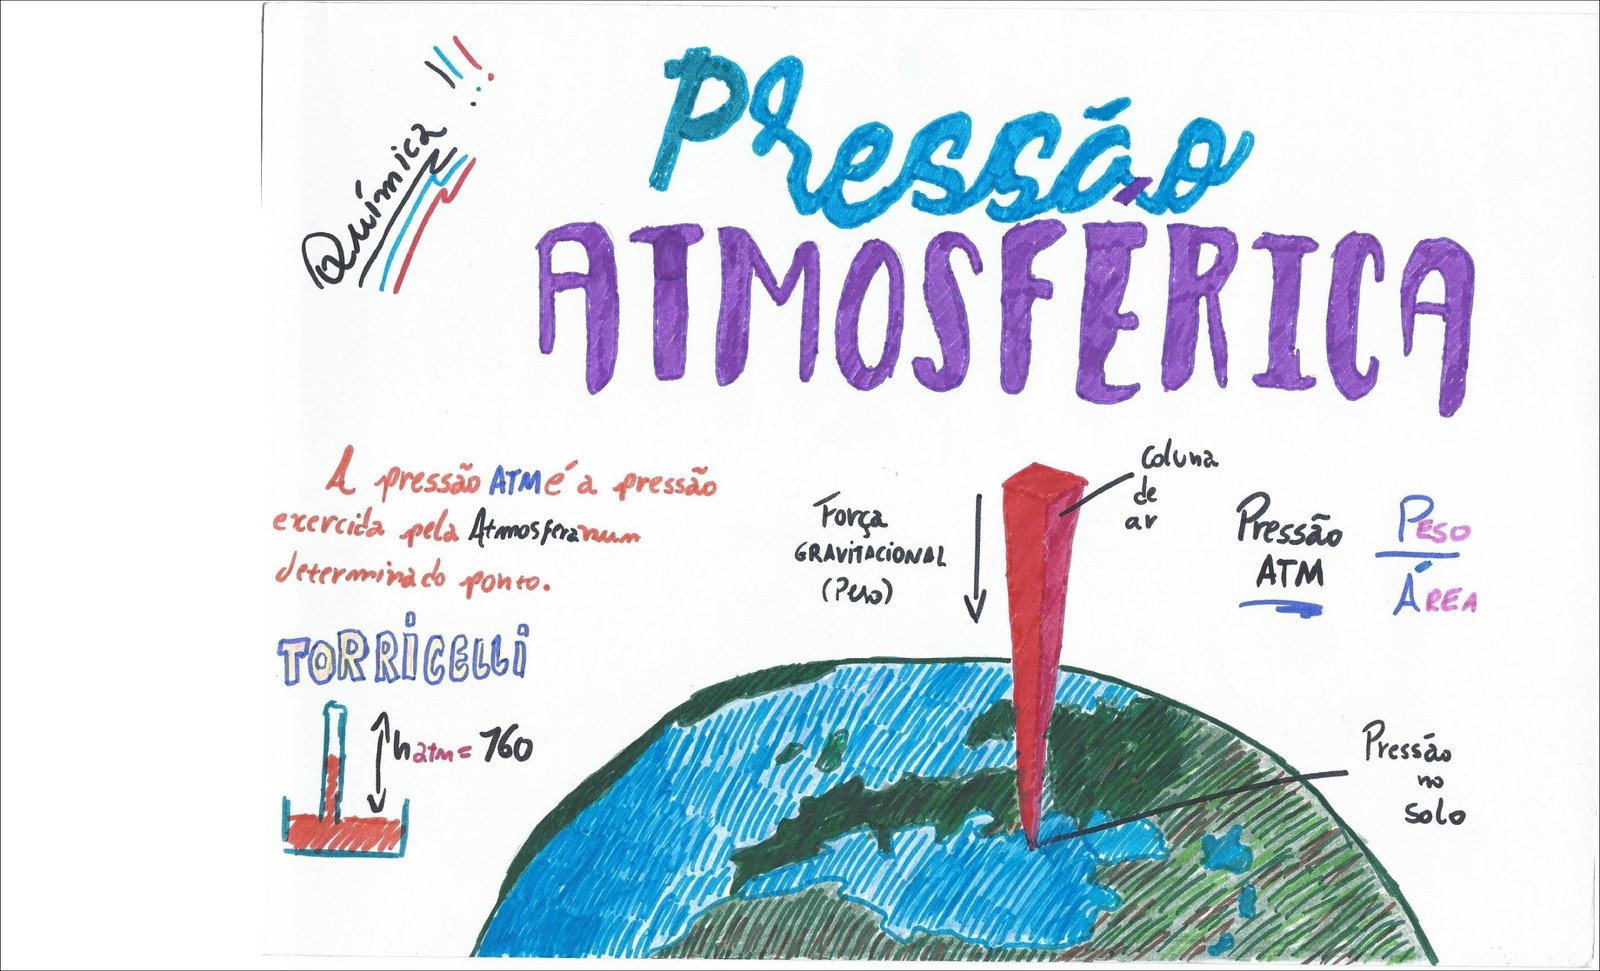 Química !!!
Pressão
ATMOSFÉRICA
A pressão ATM é a pressão
exercida pela Atmosfera num
determinado ponto.
TORRICELLI
hatm = 760
Força
GRAVITACIONAL
(Peso)
Coluna
de
ar
Pressão
ATM
PESO
ÁREA
Pressão
no
solo